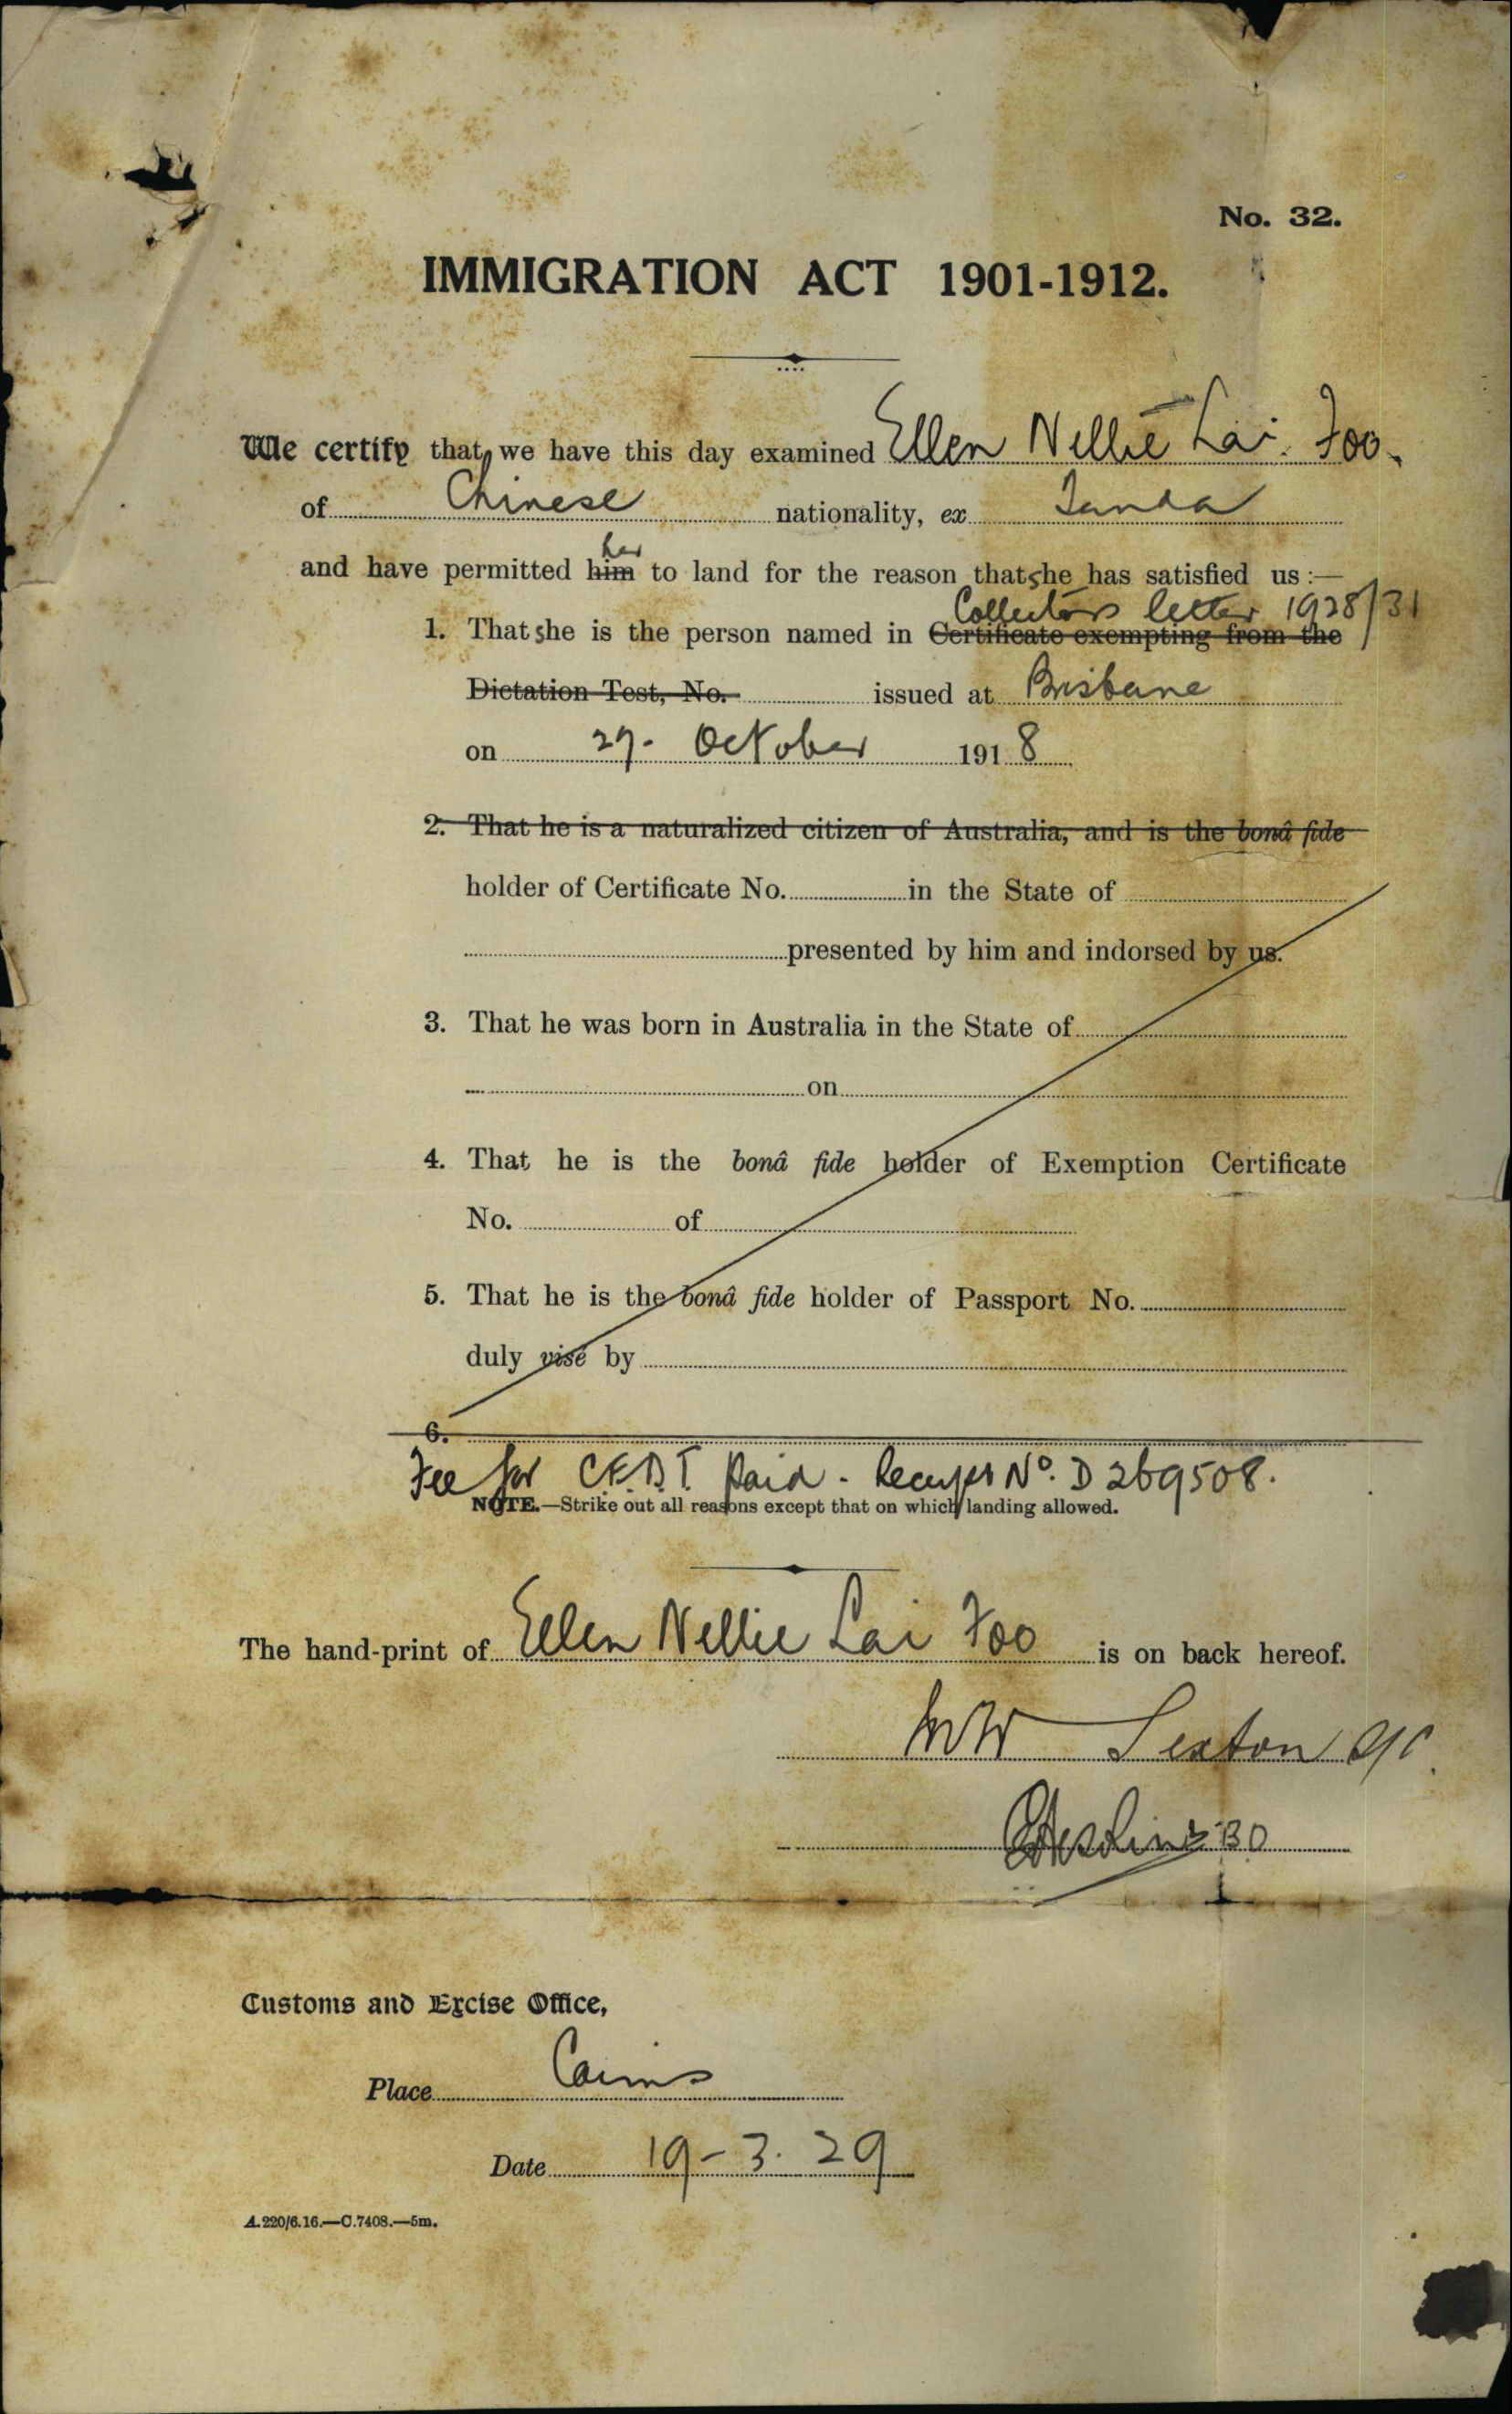 No. 32.
IMMIGRATION ACT 1901-1912.
We certify that, we have this day examined Ellen Nellie Lai Foo.
of Chinese nationality, ex Tanda
her
and have permitted him to land for the reason that she has satisfied us :—
Collectors letter 1928/31
1. That she is the person named in Certificate exempting from the
Dictation Test, No. issued at Brisbane
on 29. October 1918
2. That he is a naturalized citizen of Australia, and is the bonâ fide
holder of Certificate No. in the State of
presented by him and indorsed by us.
3. That he was born in Australia in the State of
on
4. That he is the bonâ fide holder of Exemption Certificate
No. of
5. That he is the bonâ fide holder of Passport No.
duly visé by
6.
Fee for C.E.D.T. paid - Receipt No. D 269508.
NOTE.—Strike out all reasons except that on which landing allowed.
The hand-print of Ellen Nellie Lai Foo is on back hereof.
Sexton
Customs and Excise Office,
Place Cairns
Date 19-3.29
A.220/6.16.—C.7408.—5m.